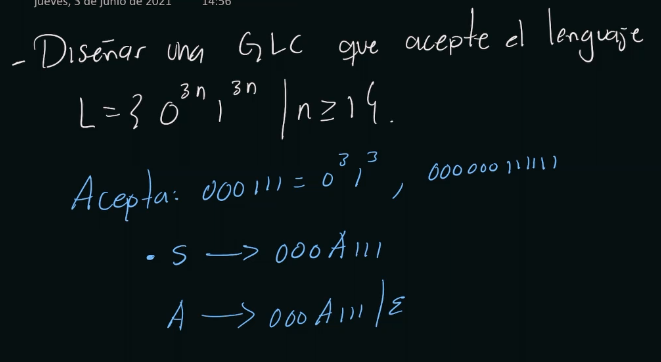 jueves, 3 de junio de 2021 14:56
- Diseñar una GLC que acepte el lenguaje
L = { 0³ⁿ 1³ⁿ | n ≥ 1 }.
Acepta: 000111 = 0³1³, 000000111111
• S → 000A111
A → 000A111 | ε